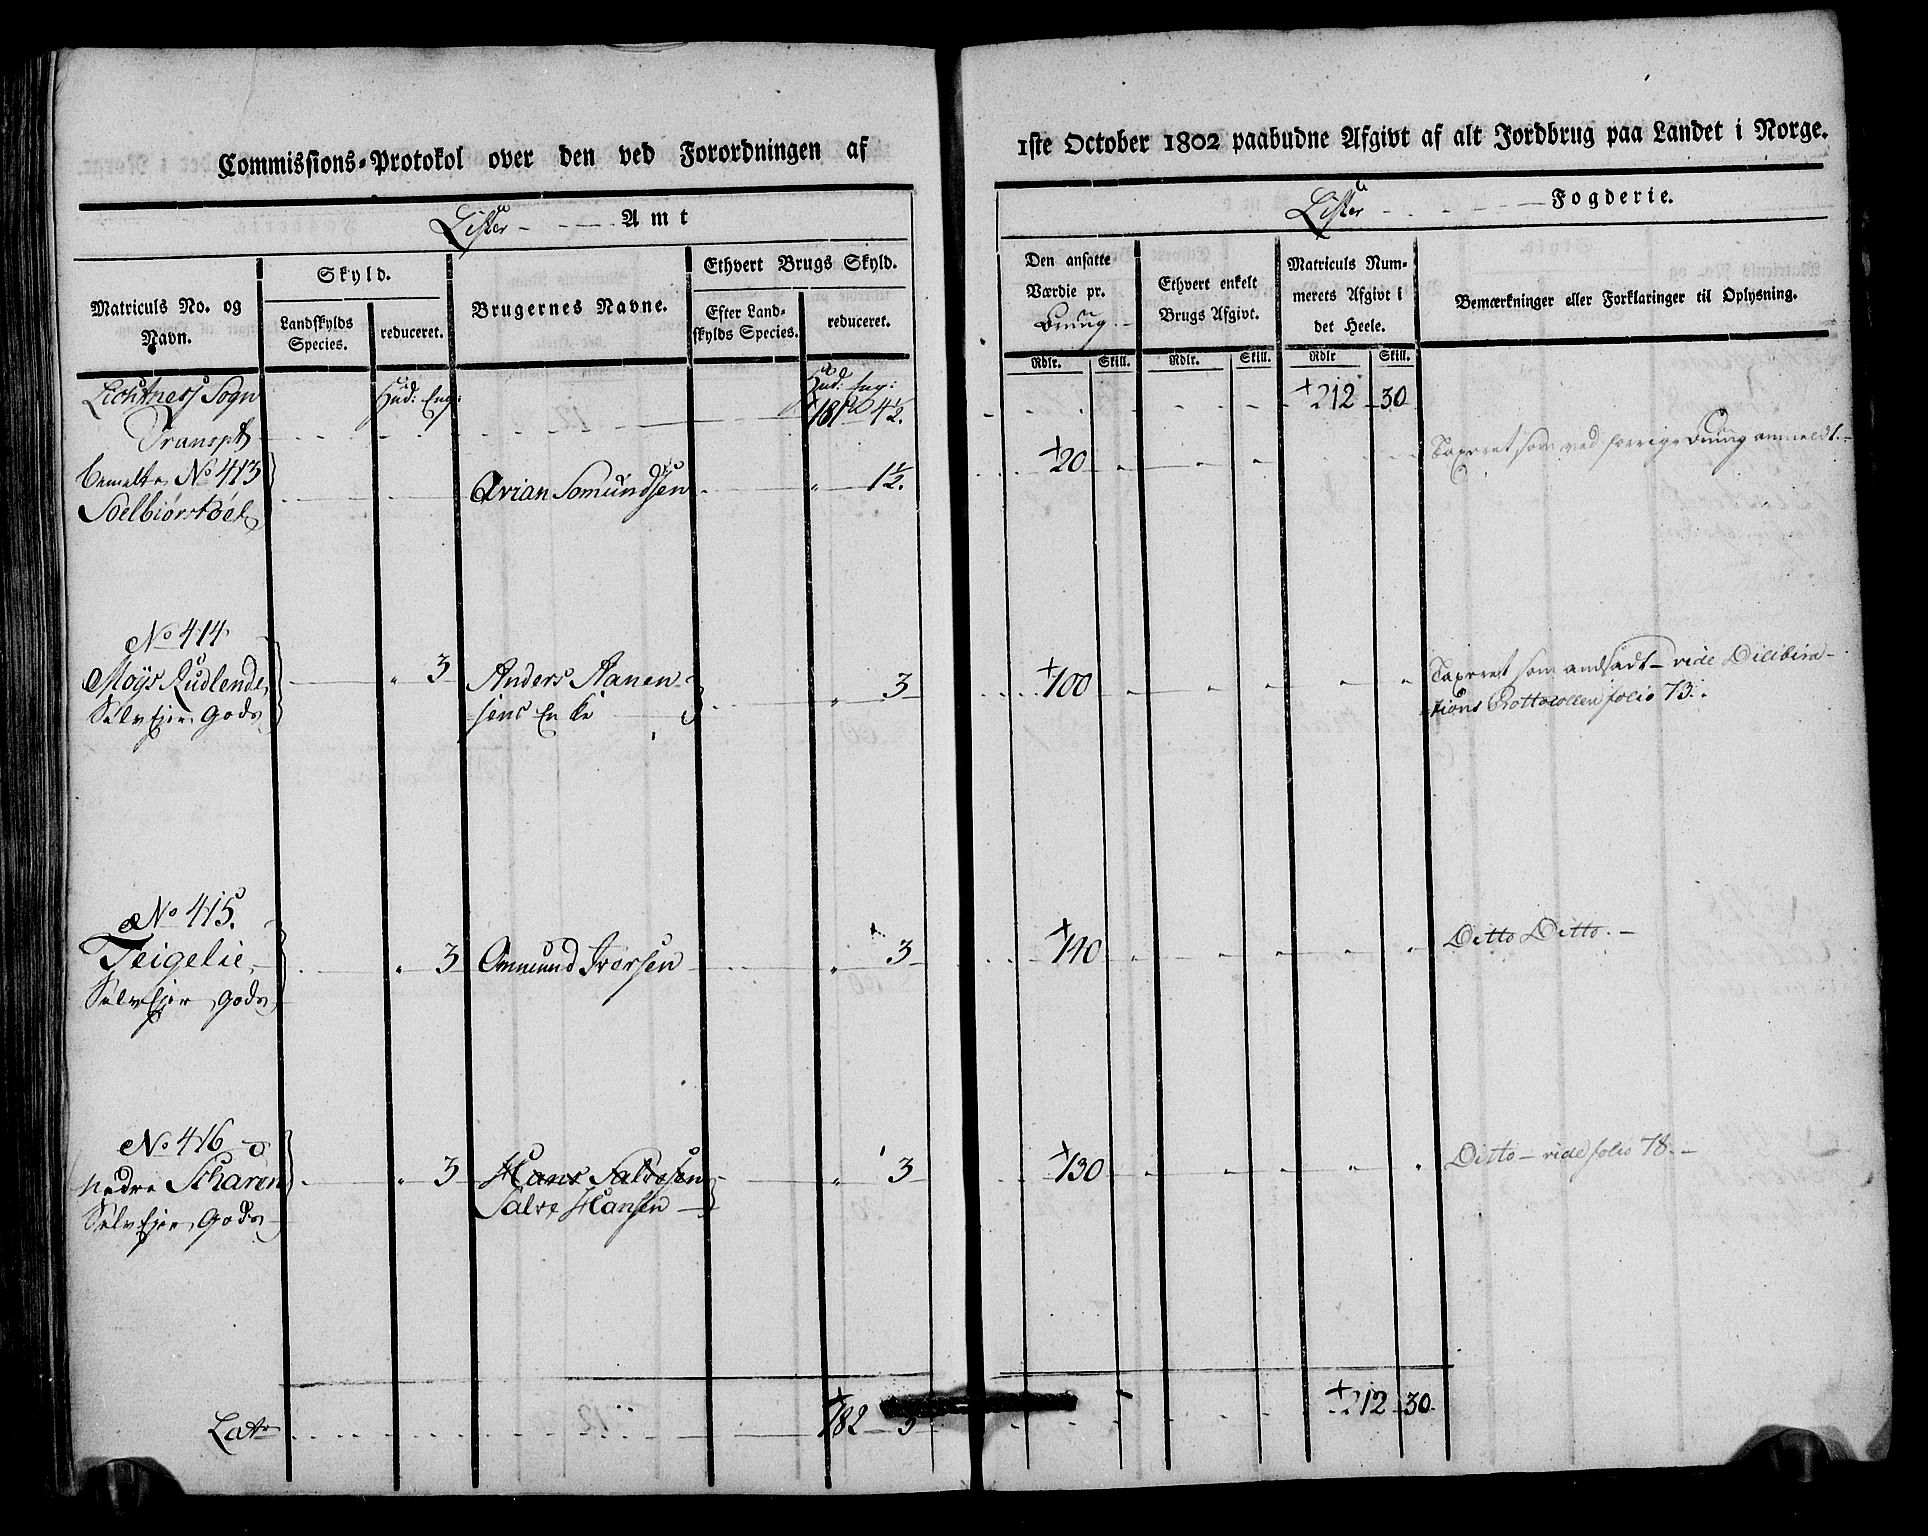 Commissions-Protokol over den ved Forordningen af
1ste October 1802 paabudne Afgivt af alt Jordbrug paa Landet i Norge.
Lister - - - - Amt
Lister - - - - Fogderie.
Matriculs No. og Navn.
Skyld.
Landskylds Species.
reduceret.
Brugernes Navne.
Ethvert Brugs Skyld.
Efter Landskylds Species.
reduceret.
Den ansatte Værdie pr. Bruug.
Ethvert enkelt Brugs Afgivt.
Matriculs Nummerets Afgivt i det Heele.
Bemærkninger eller Forklaringer til Oplysning.
Rdlr. Skill. Rdlr. Skill. Rdlr Skill.
Sogn Hud: Eng: Hud: Eng:
Transpt 181 4½. 212 30
bemelte No 413 Arian Somundsen " 1½. 20 Taxeret som ved forrige Bruug anmeldt. -
Selbiørstøel
No 414
Møys Rudlende " 3 Anders Aanen- " 3 100 Taxeret som andsadt - vide Dilibira-
SelvEjer Gods sens Enke
tions Prottocollen folio 73.
No 415.
Teigelie " 3 Ommund Iversen " 3 140 Ditto Ditto. -
SelvEjer Gods
No 416
nedre Scharen " 3 Hans Salvesen " 3 130 Ditto - vide folio 78. -
SelvEjer Gods Salve Hansen
Lat. 182 3 212 30.